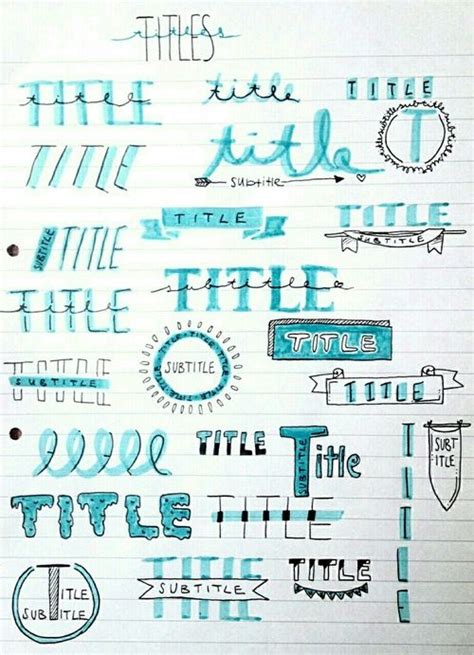 TITLES
titles
TITLE
title
title
TITLE
T
TITLE
title
subtitle
TITLE
TITLE
SUBTITLE
SUBTITLE
TITLE
TITLE
subtitle
TITLE
title
TITLE
TITLE
SUBTITLE
SUBTITLE
TITLE
TITLE
TITLE
Title
SUBTITLE
TITLE
SUBT
ITLE
TITLE
TITLE
TITLE
SUBTITLE
TITLE
SUBTITLE
TITLE